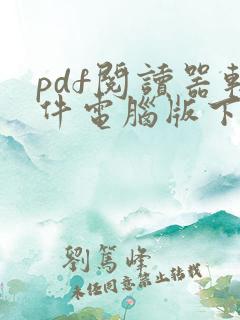 pdf閱讀器軟
件電腦版下
劉篤峰
未經同意禁止轉載